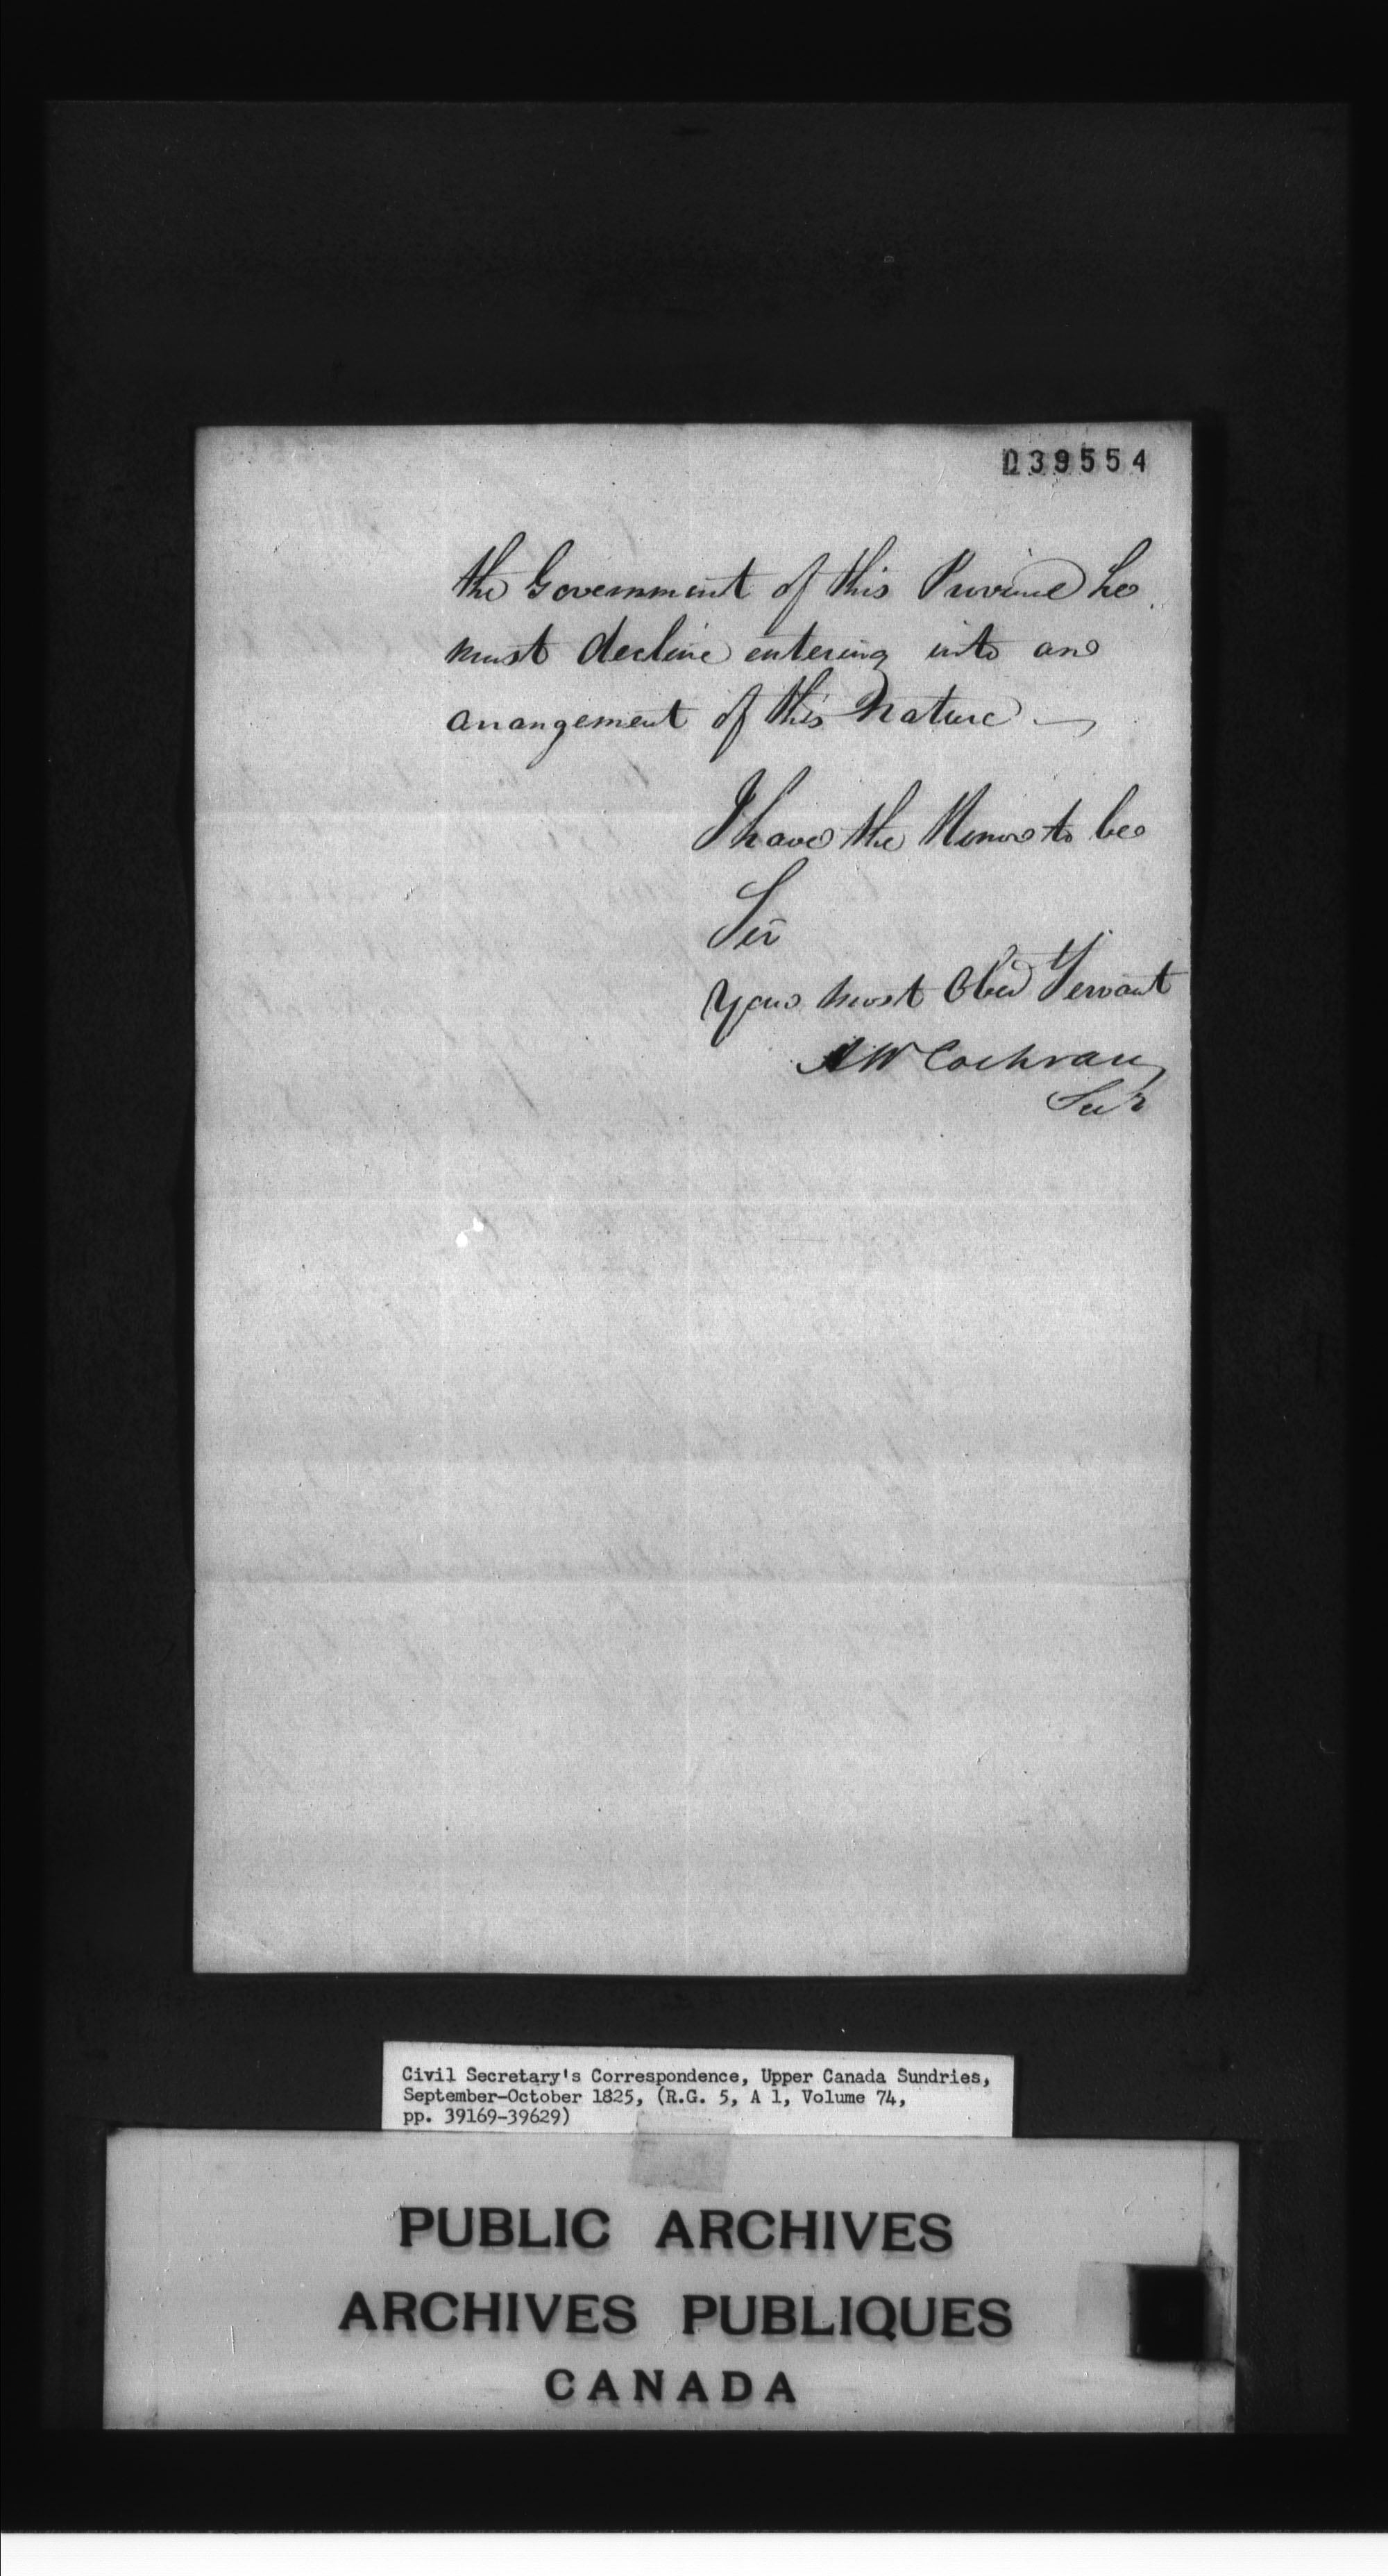 039554
the Government of this Province he
must decline entering into an
arrangement of this Nature —
I have the Honor to be
Sir
Your most Obed Servant
AW Cochran
Secy
Civil Secretary's Correspondence, Upper Canada Sundries,
September-October 1825, (R.G. 5, A 1, Volume 74,
pp. 39169-39629)
PUBLIC ARCHIVES
ARCHIVES PUBLIQUES
CANADA